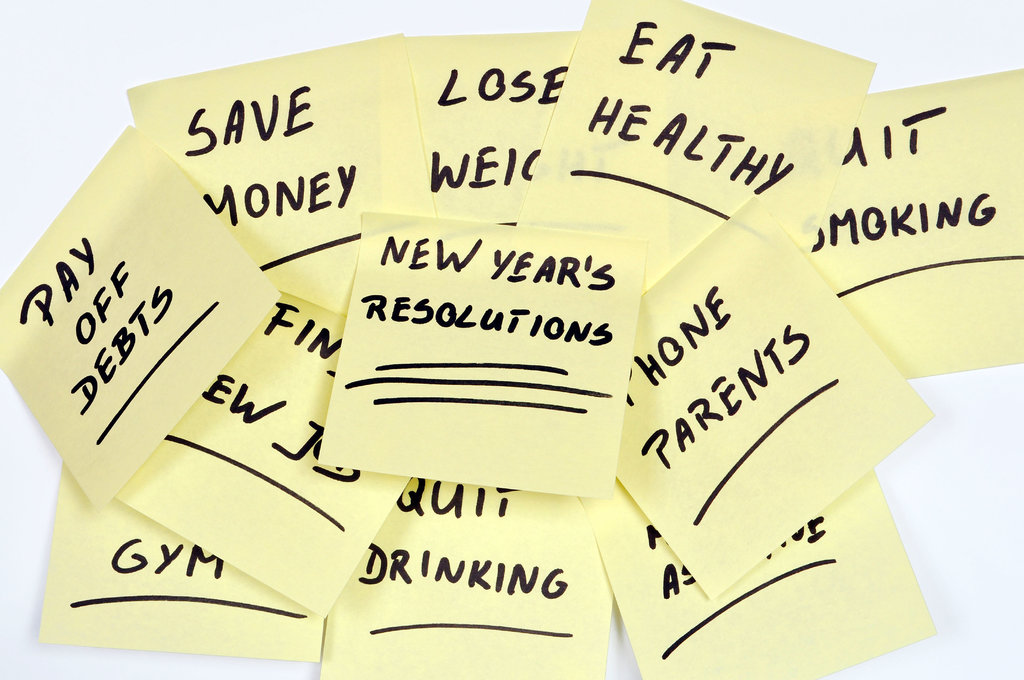 SAVE
MONEY
LOSE
WEIGHT
EAT
HEALTHY
QUIT
SMOKING
PAY
OFF
DEBTS
NEW YEAR'S
RESOLUTIONS
PHONE
PARENTS
FIND
NEW JOB
GYM
QUIT
DRINKING